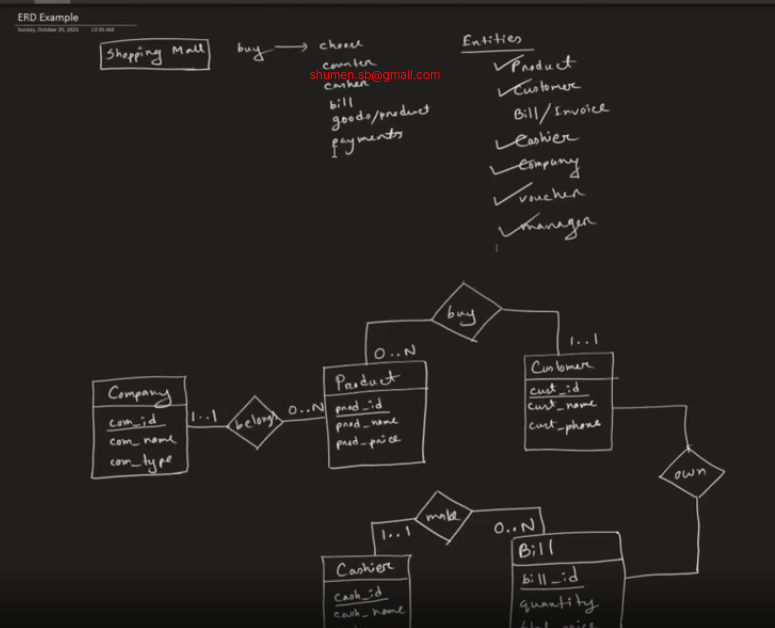 ERD Example
Sunday, October 29, 2023 12:36 AM
Shopping Mall
buy → choose
counter
shumen.sb@gmail.com
casher
bill
goods/product
payments
Entities
Product
Customer
Bill/Invoice
Cashier
Company
voucher
manager
buy
0..N
1..1
Company
com_id
com_name
com_type
1..1
belongs
0..N
Product
prod_id
prod_name
prod_price
Customer
cust_id
cust_name
cust_phone
own
make
1..1
0..N
Cashier
cash_id
cash_name
Bill
bill_id
quantity